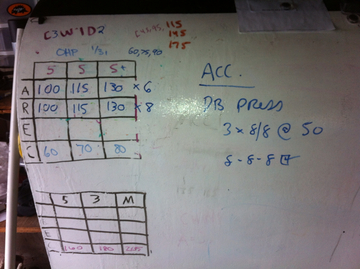 C3W1D2
115
145
175
OHP
60,75,90
5 5 5
A 100 115 130 x 6
R 100 115 130 x 8
E
C 60 70 80
ACC.
DB PRESS
3 x 8/8 @ 50
8-8-8
5 3 M
160 180 205